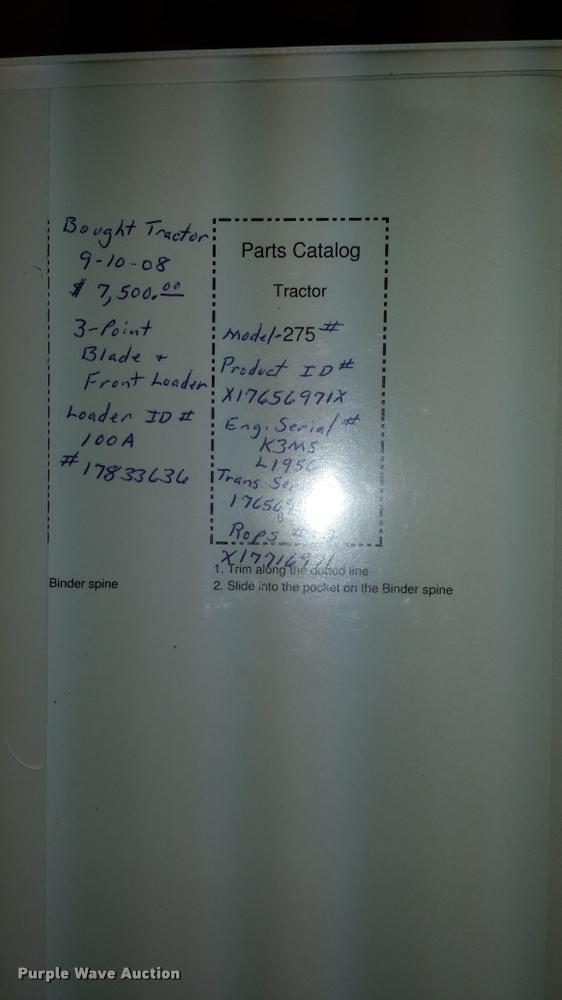 Bought Tractor
9-10-08
$ 7,500.00
3-Point
Blade +
Front Loader
Loader ID #
100A
# 17833636
Binder spine
Parts Catalog
Tractor
Model-275 #
Product ID #
X17656971X
Eng. Serial #
K3M5
L195
Trans.
17656
Rops #
1. Trim along the dotted line
2. Slide into the pocket on the Binder spine
Purple Wave Auction